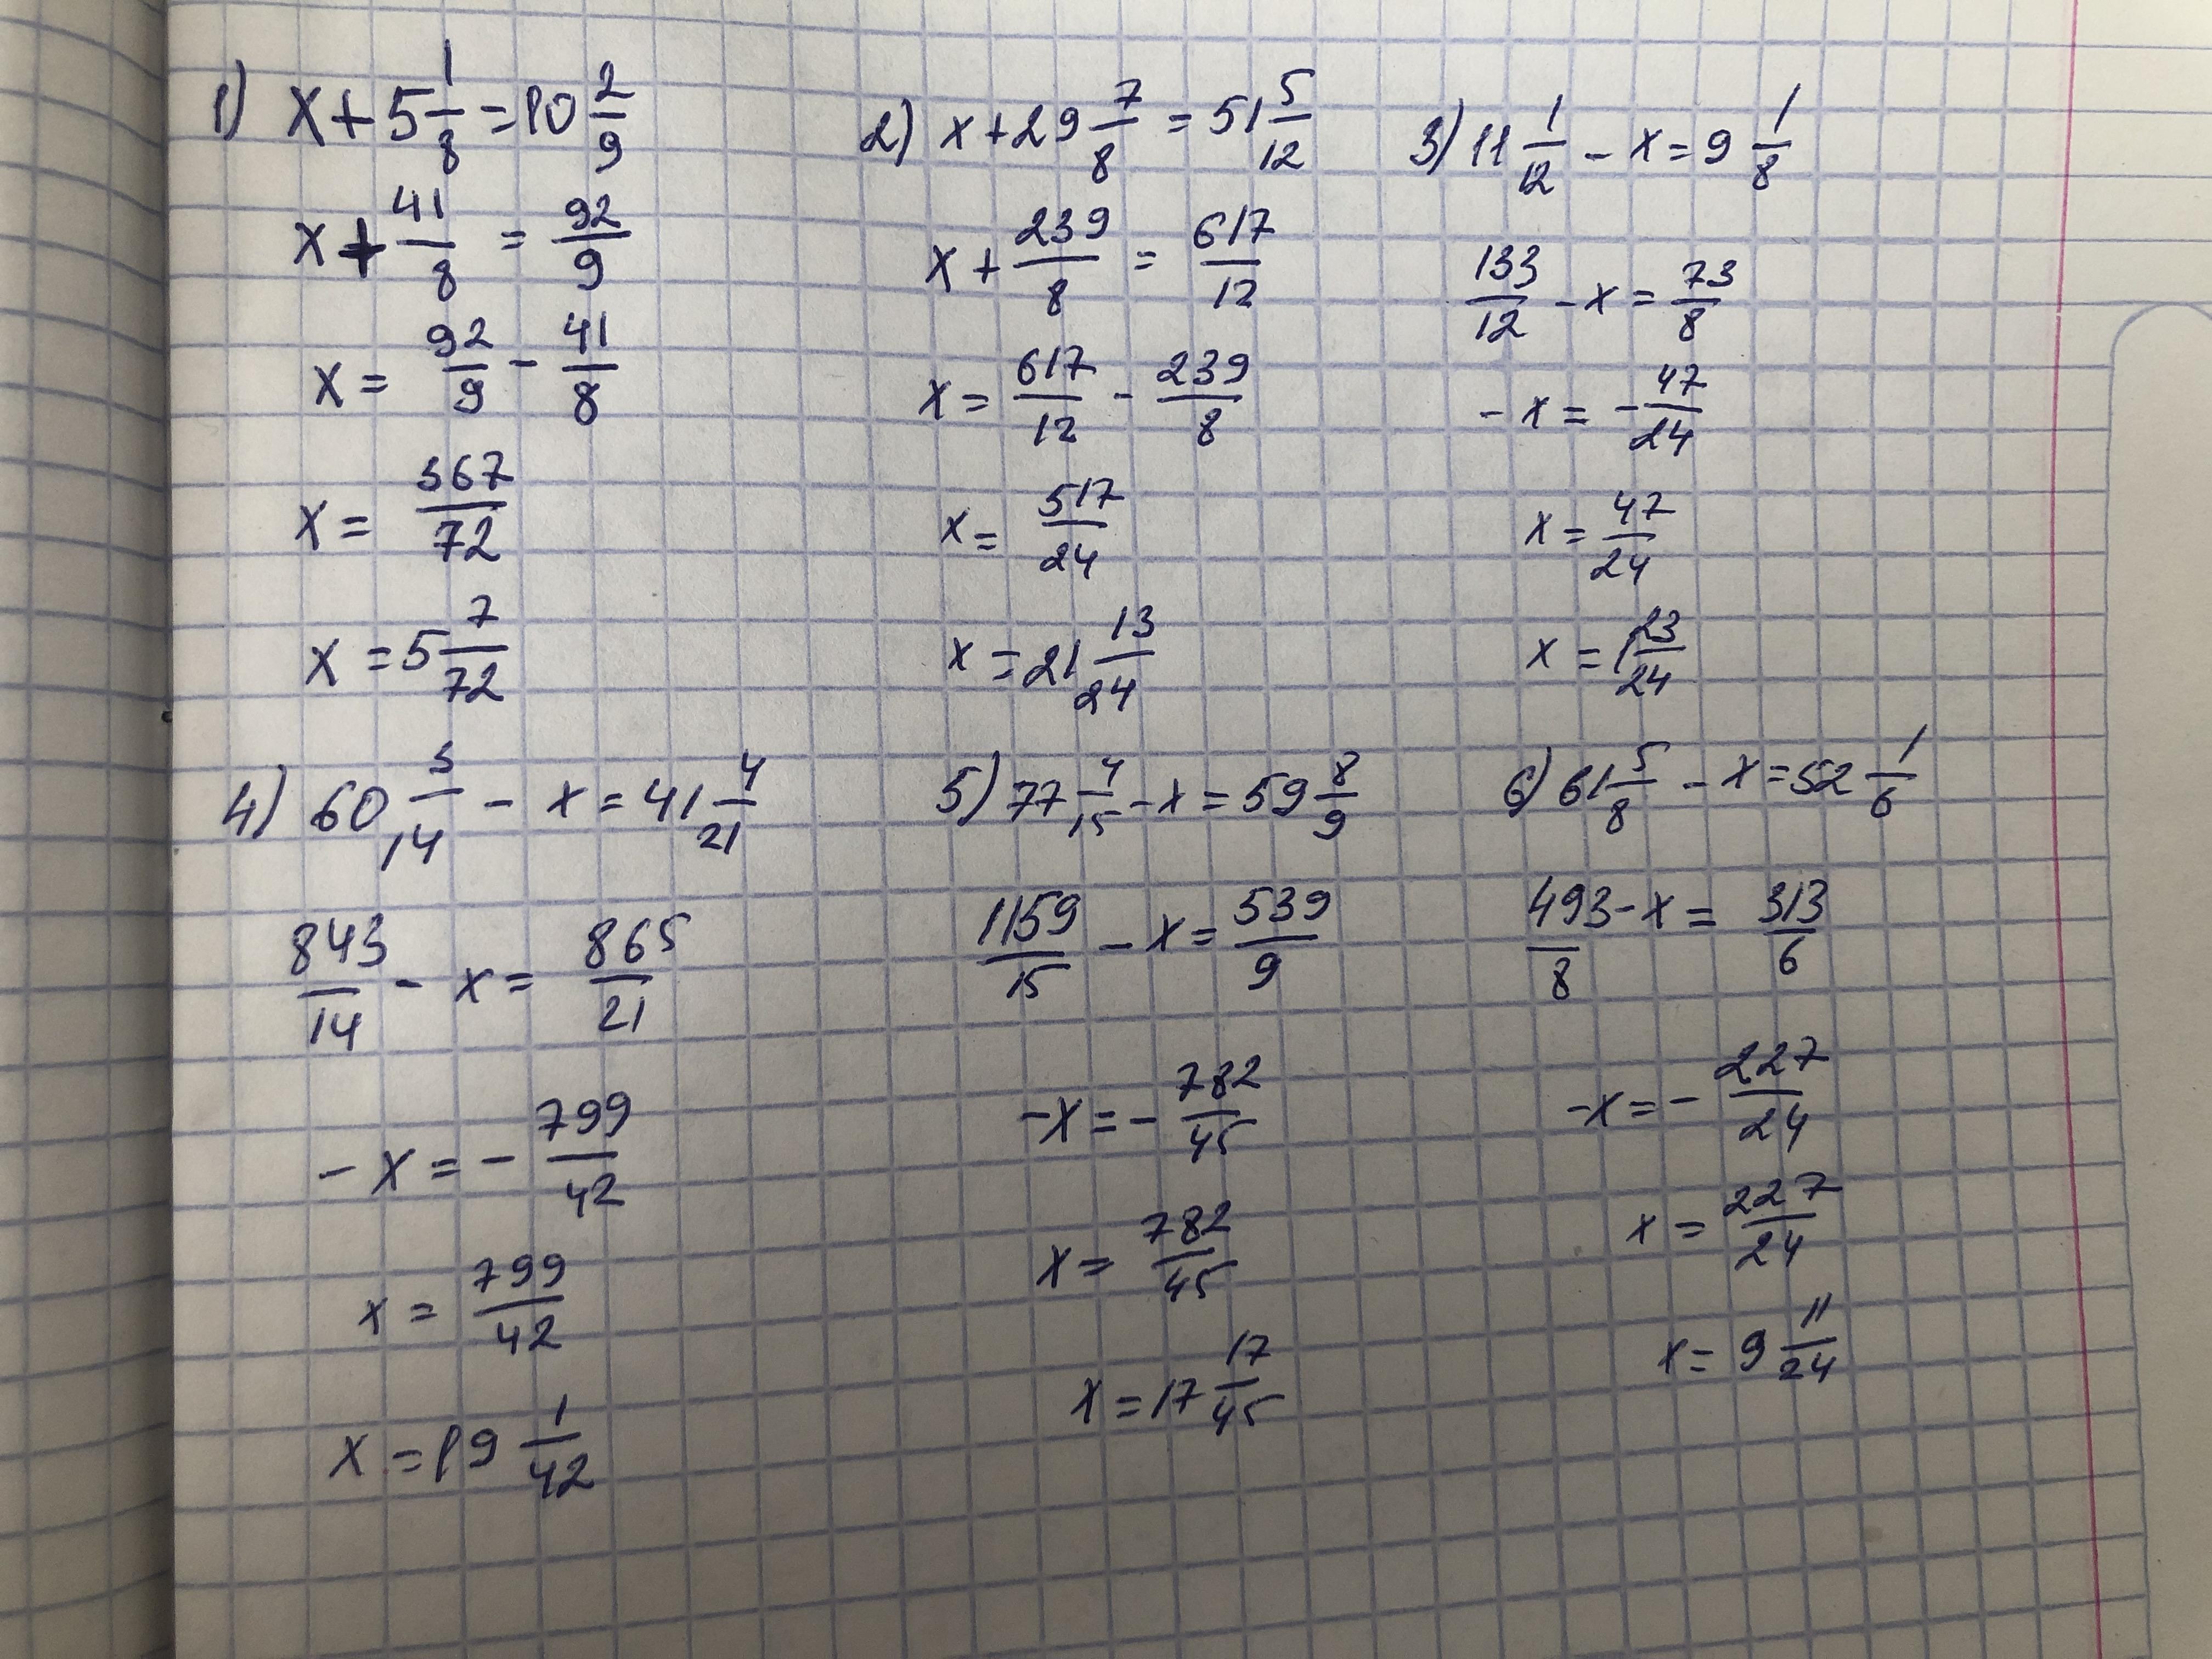 1) x + 5 1/8 = 10 2/9
x + 41/8 = 92/9
x = 92/9 - 41/8
x = 367/72
x = 5 7/72
2) x + 29 7/8 = 51 5/12
x + 239/8 = 617/12
x = 617/12 - 239/8
x = 517/24
x = 21 13/24
3) 11 1/12 - x = 9 1/8
133/12 - x = 73/8
- x = - 47/24
x = 47/24
x = 1 23/24
4) 60 3/14 - x = 41 4/21
843/14 - x = 865/21
- x = - 799/42
x = 799/42
x = 19 1/42
5) 77 4/15 - x = 59 8/9
1159/15 - x = 539/9
- x = - 782/45
x = 782/45
x = 17 17/45
6) 61 5/8 - x = 52 1/6
493/8 - x = 313/6
- x = - 227/24
x = 227/24
x = 9 11/24